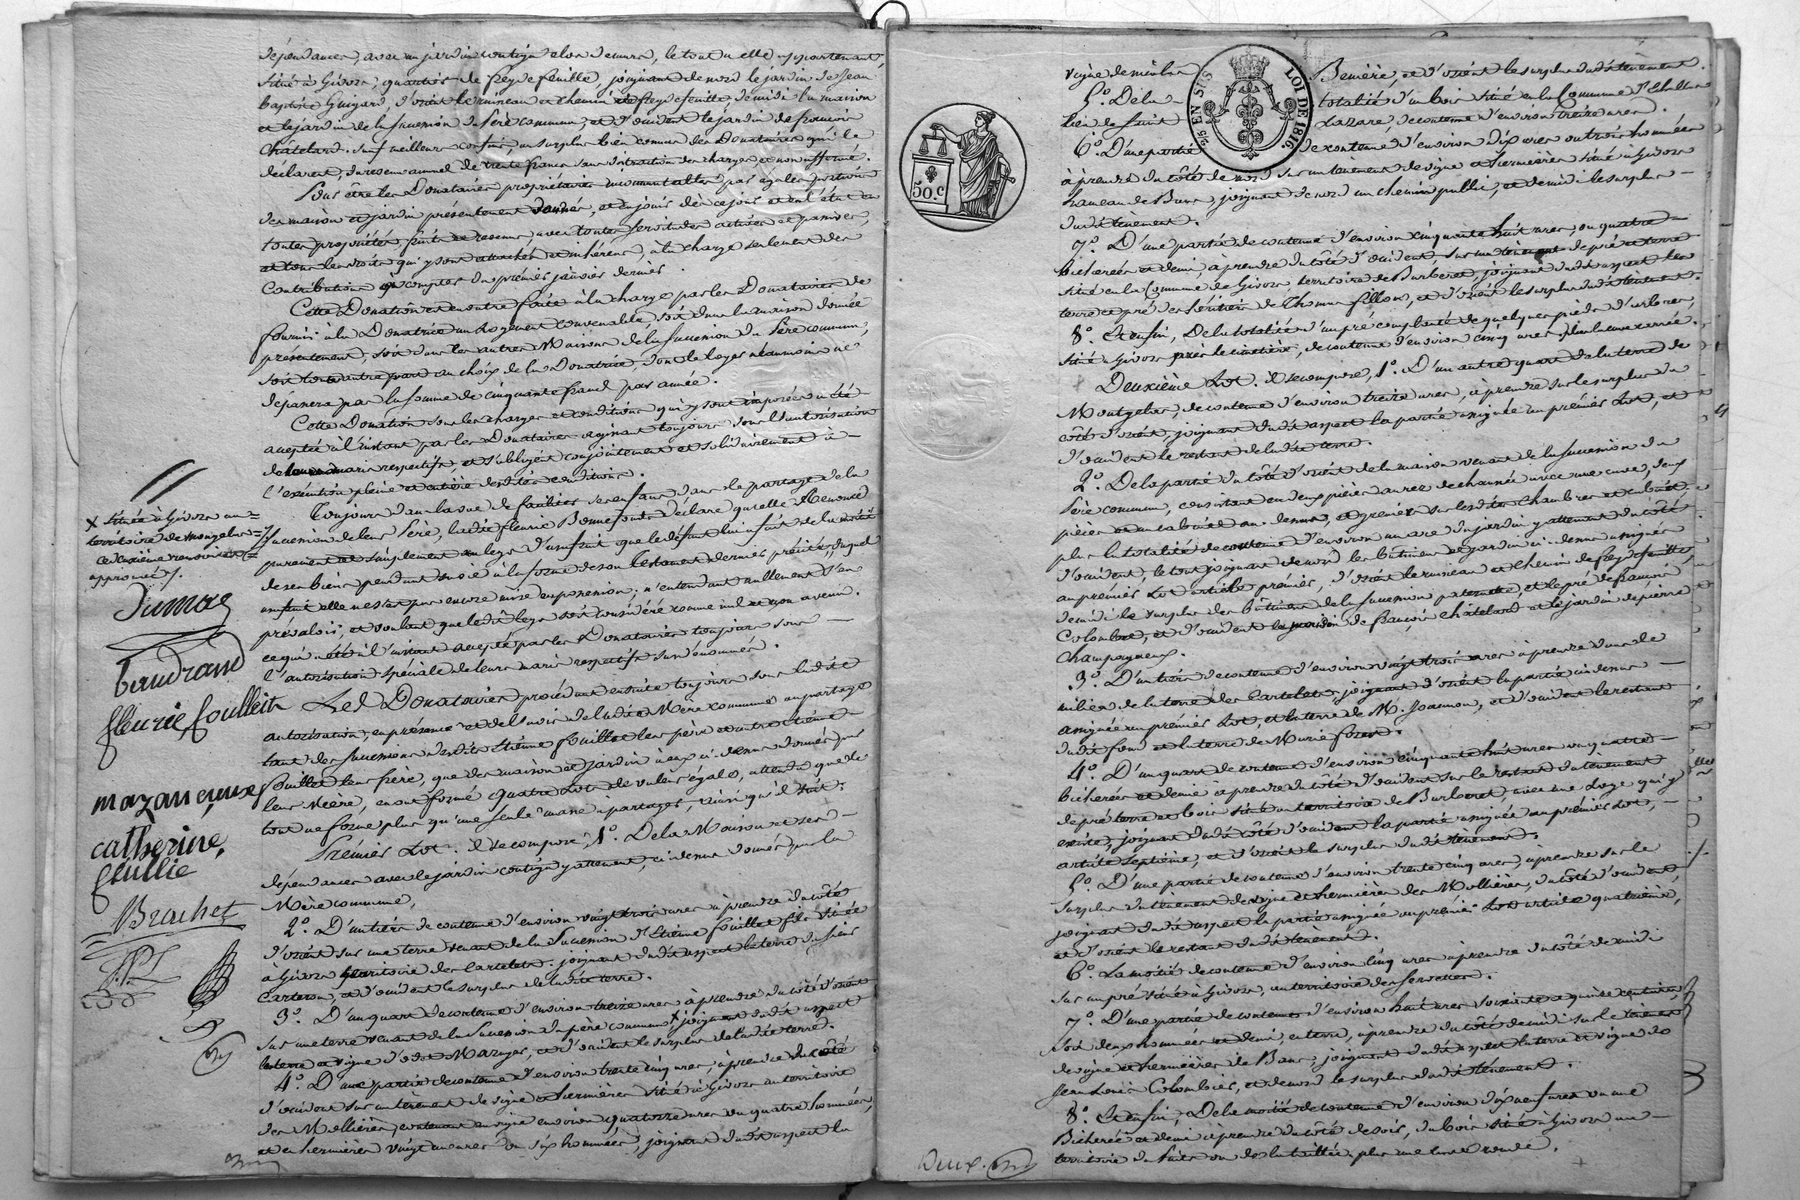 dépendances, avec un jardin contigu clos de murs, le tout a elle appartenant,
situé à Givors, quartier de freydefeuille, joignant de nord le jardin de Jean
baptiste Guigard, d'orient le ruisseau et chemin de freydefeuille, de midi la maison
et le jardin de la succession du Père commun, et d'occident le jardin de françois
Châtelard. sauf meilleurs confins, au surplus bien connus des Donataires qui le
déclarent, du revenu annuel de trente francs sans distraction des charges et non affermé.
Pour être les Donataires propriétaires incommutables par égales portions
des maison et jardin présentement donnés, et en jouir dès ce jour et en l'état en
toute propriété, fruits et revenus, avec toutes servitudes actives et passives,
et tous les droits qui y sont attachés et inhérens, à la charge seulement des
contributions à compter du premier janvier dernier.
Cette Donation est en outre faite à la charge par les Donataires de
fournir à la Donatrice un logement convenable, soit dans la maison donnée
présentement, soit dans les autres Maisons de la succession du Père commun,
soit tout autre part au choix de la Donatrice, dont le loyer néanmoins ne
dépassera pas la somme de cinquante francs par année.
Cette Donation sous les charges et conditions qui y sont imposées a été
acceptée à l'instant par les Donataires agissant toujours sous l'autorisation
de leurs maris respectifs, et s'obligent conjointement et solidairement à
l'exécution pleine et entière desdites conditions.
Toujours dans la vue de faciliter ses enfans dans le partage de la
succession de leur Père, ladite fleurie Bonnefonds déclare qu'elle Renonce
purement et simplement au legs d'usufruit que le défunt lui a fait de la moitié
de ses biens pendant sa vie à la forme de son testament dernier précité, duquel
usufruit elle ne s'est pas encore mise en possession, n'entendant nullement s'en
prévaloir, et voulant que ledit legs soit considéré comme nul et non avenu.
ce qui a été à l'instant accepté par les Donataires toujours sous
l'autorisation spéciale de leurs maris respectifs susdénommés.
Les Donataires procédant ensuite toujours sous ladite
autorisation, en présence et de l'avis de ladite Mère commune au partage
tant des successions desdits Etienne fouillet leur père et autre Etienne
fouillet leur frère, que des maison et jardin à eux ci-dessus donnés par
leur Mère, en ont formé quatre Lots de valeur égale, attendu que le
tout ne forme plus qu'une seule masse à partager, ainsi qu'il suit.
Premier Lot. il se compose, 1.º De la Maison et ses
dépendances avec le jardin contigu y attenant, ci-dessus donnés par la
Mère commune.
2.º D'un tiers de contenue d'environ vingt trois ares à prendre du côté
d'orient sur une terre venant de la Succession d'Etienne fouillet fils située
à Givors territoire des Cartelets. joignant dudit aspect la terre du sieur
Carteron, et d'occident le surplus de ladite terre.
3.º D'un quart de contenue d'environ treize ares à prendre du côté d'orient
sur une terre venant de la succession du père commun, x joignant dudit aspect
la terre et vigne d'odet Mazuyer, et d'occident le surplus de ladite terre.
4.º D'une partie de contenue d'environ trente cinq ares, à prendre du côté
d'occident sur un tènement de vigne et hermière situé à Givors au territoire
des Mollières, contenant en vigne environ quatorze ares ou quatre hommées,
et en hermières vingt un ares ou six hommées, joignant dudit aspect la
x située à Givors au
territoire de Mongelas
ce deuxième renvoi
approuvé /.
Dumas
baudrand
fleurie foulleit
mazanieux
catherine
fullie
Brachet
vigne de nicolas Benière, et d'orient le surplus dudit tènement.
5.º De la totalité d'un bois situé en la Commune d'Echallas
lieu de Saint Lazare, de contenue d'environ treize ares.
6.º D'une partie de contenue d'environ dix ares ou trois hommées
à prendre du côté de nord sur un tènement de vigne et hermières situé à Givors
hameau de Bans, joignant de nord un chemin public, et de midi le surplus
dudit tènement.
7.º D'une partie de contenue d'environ cinquante huit ares, ou quatre
bicherées et demi, à prendre du côté d'occident, sur un tènement de pré et terre
situé en la Commune de Givors, territoire de Burberet, joignant dudit aspect les
terre et pré des héritiers de Thomas fillon, et d'orient le surplus dudit tènement.
8.º Et enfin, De la totalité d'un pré complanté de quelques pieds d'arbres,
situé à Givors près le cimetière, de contenue d'environ cinq ares, plus la cave carrée.
Deuxième Lot. il se compose, 1.º D'un autre quart de la terre de
Montgelas, de contenue d'environ treize ares, à prendre sur le surplus du
côté d'orient, joignant dudit aspect la partie assignée au premier Lot, et
d'occident le restant de ladite terre.
2.º De la partie du côté d'orient de la maison venant de la succession du
Père commun, consistant en deux pièces au rez de chaussée avec une cuve, deux
pièces et un cabinet au-dessus, et grenier sur lesdites chambres et cabinet,
plus la totalité de contenue d'environ un are du jardin y attenant du côté
d'occident, le tout joignant de nord les bâtimens et jardin ci-dessus assignés
au premier Lot article premier, d'orient le ruisseau et chemin de freydefeuille,
de midi le surplus des bâtimens de la succession paternelle, et le pré de francois
Colombier, et d'occident le jardin de françois Châtelard et le jardin de pierre
Champagneux.
3.º D'un tiers de contenue d'environ vingt trois ares à prendre dans le
milieu de la terre des Cartelets, joignant d'orient la partie ci-dessus
assignée au premier Lot, et la terre de M. Joannon, et d'occident le restant
dudit fond et la terre de Marie forest.
4.º D'un quart de contenue d'environ cinquante huit ares ou quatre
bicherées et demie à prendre du côté d'occident sur le restant du tènement
de pré terre et bois situé au territoire de Burberet, avec une Loge qui y
existe, joignant dudit côté d'occident la partie assignée au premier Lot,
article septième, et d'orient le surplus dudit tènement.
5.º D'une partie de contenue d'environ trente cinq ares, à prendre sur le
surplus du tènement de vigne et hermière des Mollières, du côté d'occident
joignant dudit aspect la partie assignée au premier Lot article quatrième,
et d'orient le restant dudit tènement.
6.º La moitié de contenue d'environ cinq ares à prendre du côté de midi
sur un pré situé à Givors, au territoire des Servettes.
7.º D'une partie de contenue d'environ huit ares soixante quinze centiares,
soit deux hommées et demi, en terre, à prendre du côté de midi sur le tènement
de vigne et hermières de Bans, joignant dudit aspect la terre et vigne de
Jean Louis Colombier, et de nord le surplus dudit tènement.
8.º Et enfin, De la moitié de contenue d'environ dix neuf ares ou une
Bicherée et demie à prendre du côté de soir, du bois situé à Givors au
territoire du fuits ou de la taillée plus une cuve ronde.
EN SUS
LOI DE 1816
50.C
Deux.